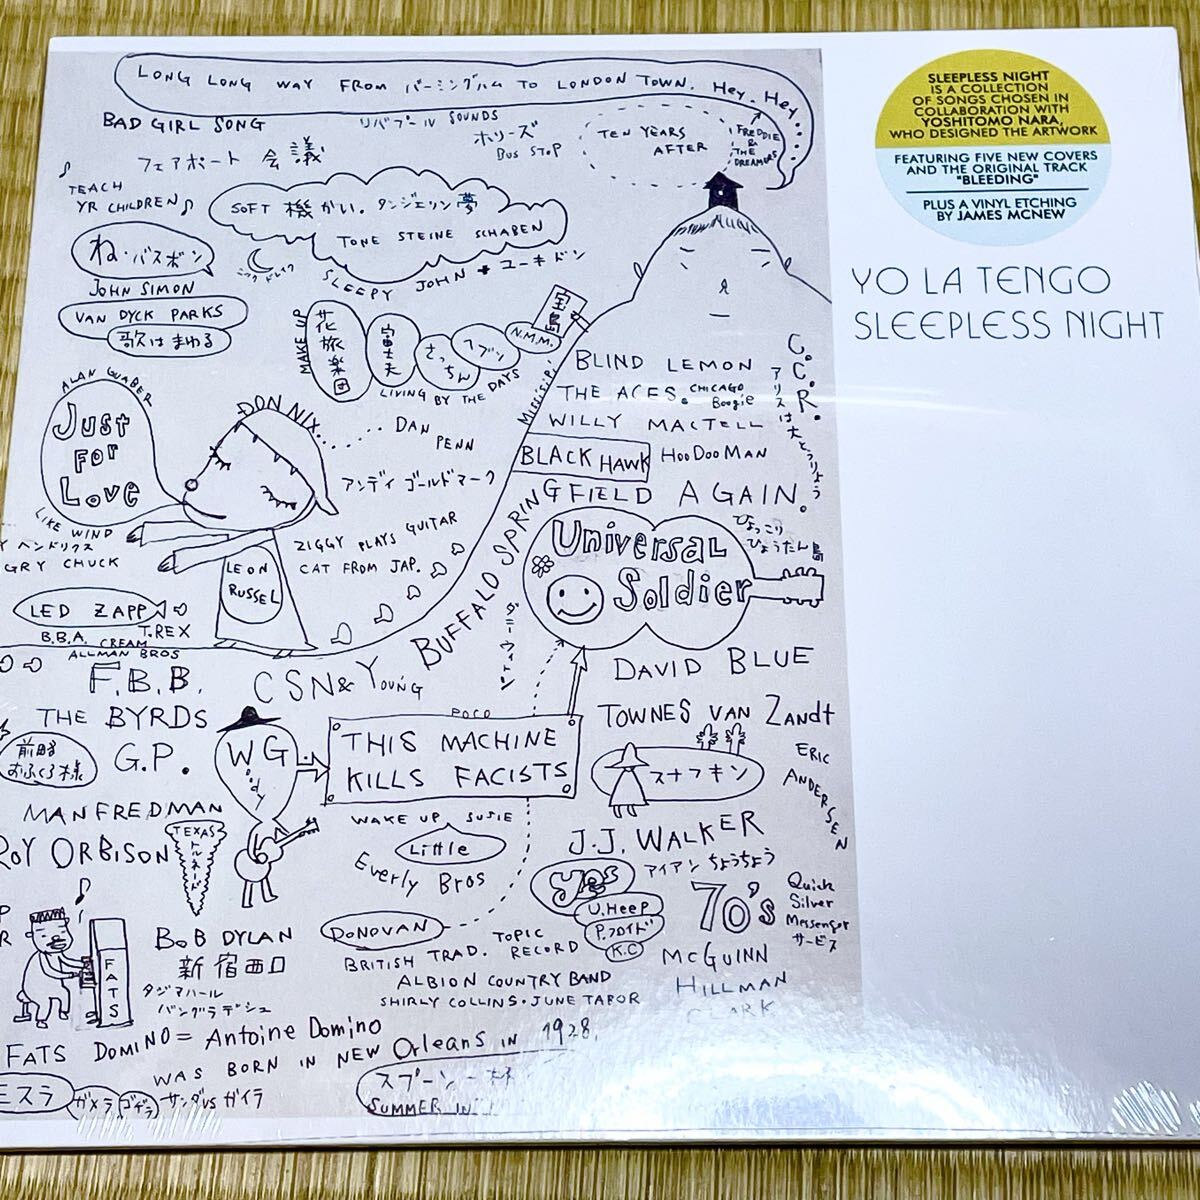 LONG LONG WAY FROM バーミングハム TO LONDON TOWN. Hey. Hey...
BAD GIRL SONG
リバプール SOUNDS
ホリーズ
BUS STOP
TEN YEARS
AFTER
FREDDIE
&
THE
DREAMERS
フェアポート 会議
TEACH
YR CHILDREN
SOFT 機かい。タンジェリン夢
TONE STEINE SCHABEN
ね・バスボン
ニック ドレイク
SLEEPY JOHN + ユーキドン
JOHN SIMON
VAN DYCK PARKS
歌はまわる
MAKE UP
花旅楽団
富士夫
さっちん
ヘブン
N.M.M.
LIVING BY THE DAYS
宝島
Missisipi
BLIND LEMON
THE ACES.
CHICAGO
Boogie
WILLY MACTELL
BLACK HAWK
HOO DOO MAN
C.C.R.
アリスは大とうりょう
ALAN GUABER
Just
FOR
Love
DON NIX........
DAN
PENN
アンディ ゴールドマーク
LIKE WIND
ヘンドリクス
GRY CHUCK
ZIGGY PLAYS GUITAR
CAT FROM JAP.
LEON
RUSSEL
LED ZAPP
B.B.A. CREAM T.REX
ALLMAN BROS
F.B.B.
CSN& YOUNG
BUFFALO SPRINGFIELD AGAIN.
ひょっこり
ひょうたん島
Universal
Soldier
DAVID BLUE
TOWNES VAN Zandt
スナフキン
ERIC
ANDERSEN
THE BYRDS
G.P.
前略
おふくろ様
WG
oody
POCO
THIS MACHINE
KILLS FACISTS
MANFREDMAN
ROY ORBISON
TEXAS
トルネード
WAKE UP SUSIE
Little
Everly Bros
J.J. WALKER
アイアン ちょうちょう
yes
U.Heep
P.フロイド
K.C
70's
Quick
Silver
Messenger
サービス
FATS
BOB DYLAN
新宿西口
タジマハール
バングラデシュ
DONOVAN
BRITISH TRAD. TOPIC RECORD
ALBION COUNTRY BAND
SHIRLY COLLINS・JUNE TABOR
MCGUINN
HILLMAN
CLARK
FATS DOMINO = Antoine Domino
WAS BORN IN NEW Orleans IN 1928.
モスラ
ガメラ
ゴジラ
サンダ vs ガイラ
スプーン一杯
SUMMER IN
SLEEPLESS NIGHT
IS A COLLECTION
OF SONGS CHOSEN IN
COLLABORATION WITH
YOSHITOMO NARA,
WHO DESIGNED THE ARTWORK
FEATURING FIVE NEW COVERS
AND THE ORIGINAL TRACK
"BLEEDING"
PLUS A VINYL ETCHING
BY JAMES MCNEW
YO LA TENGO
SLEEPLESS NIGHT